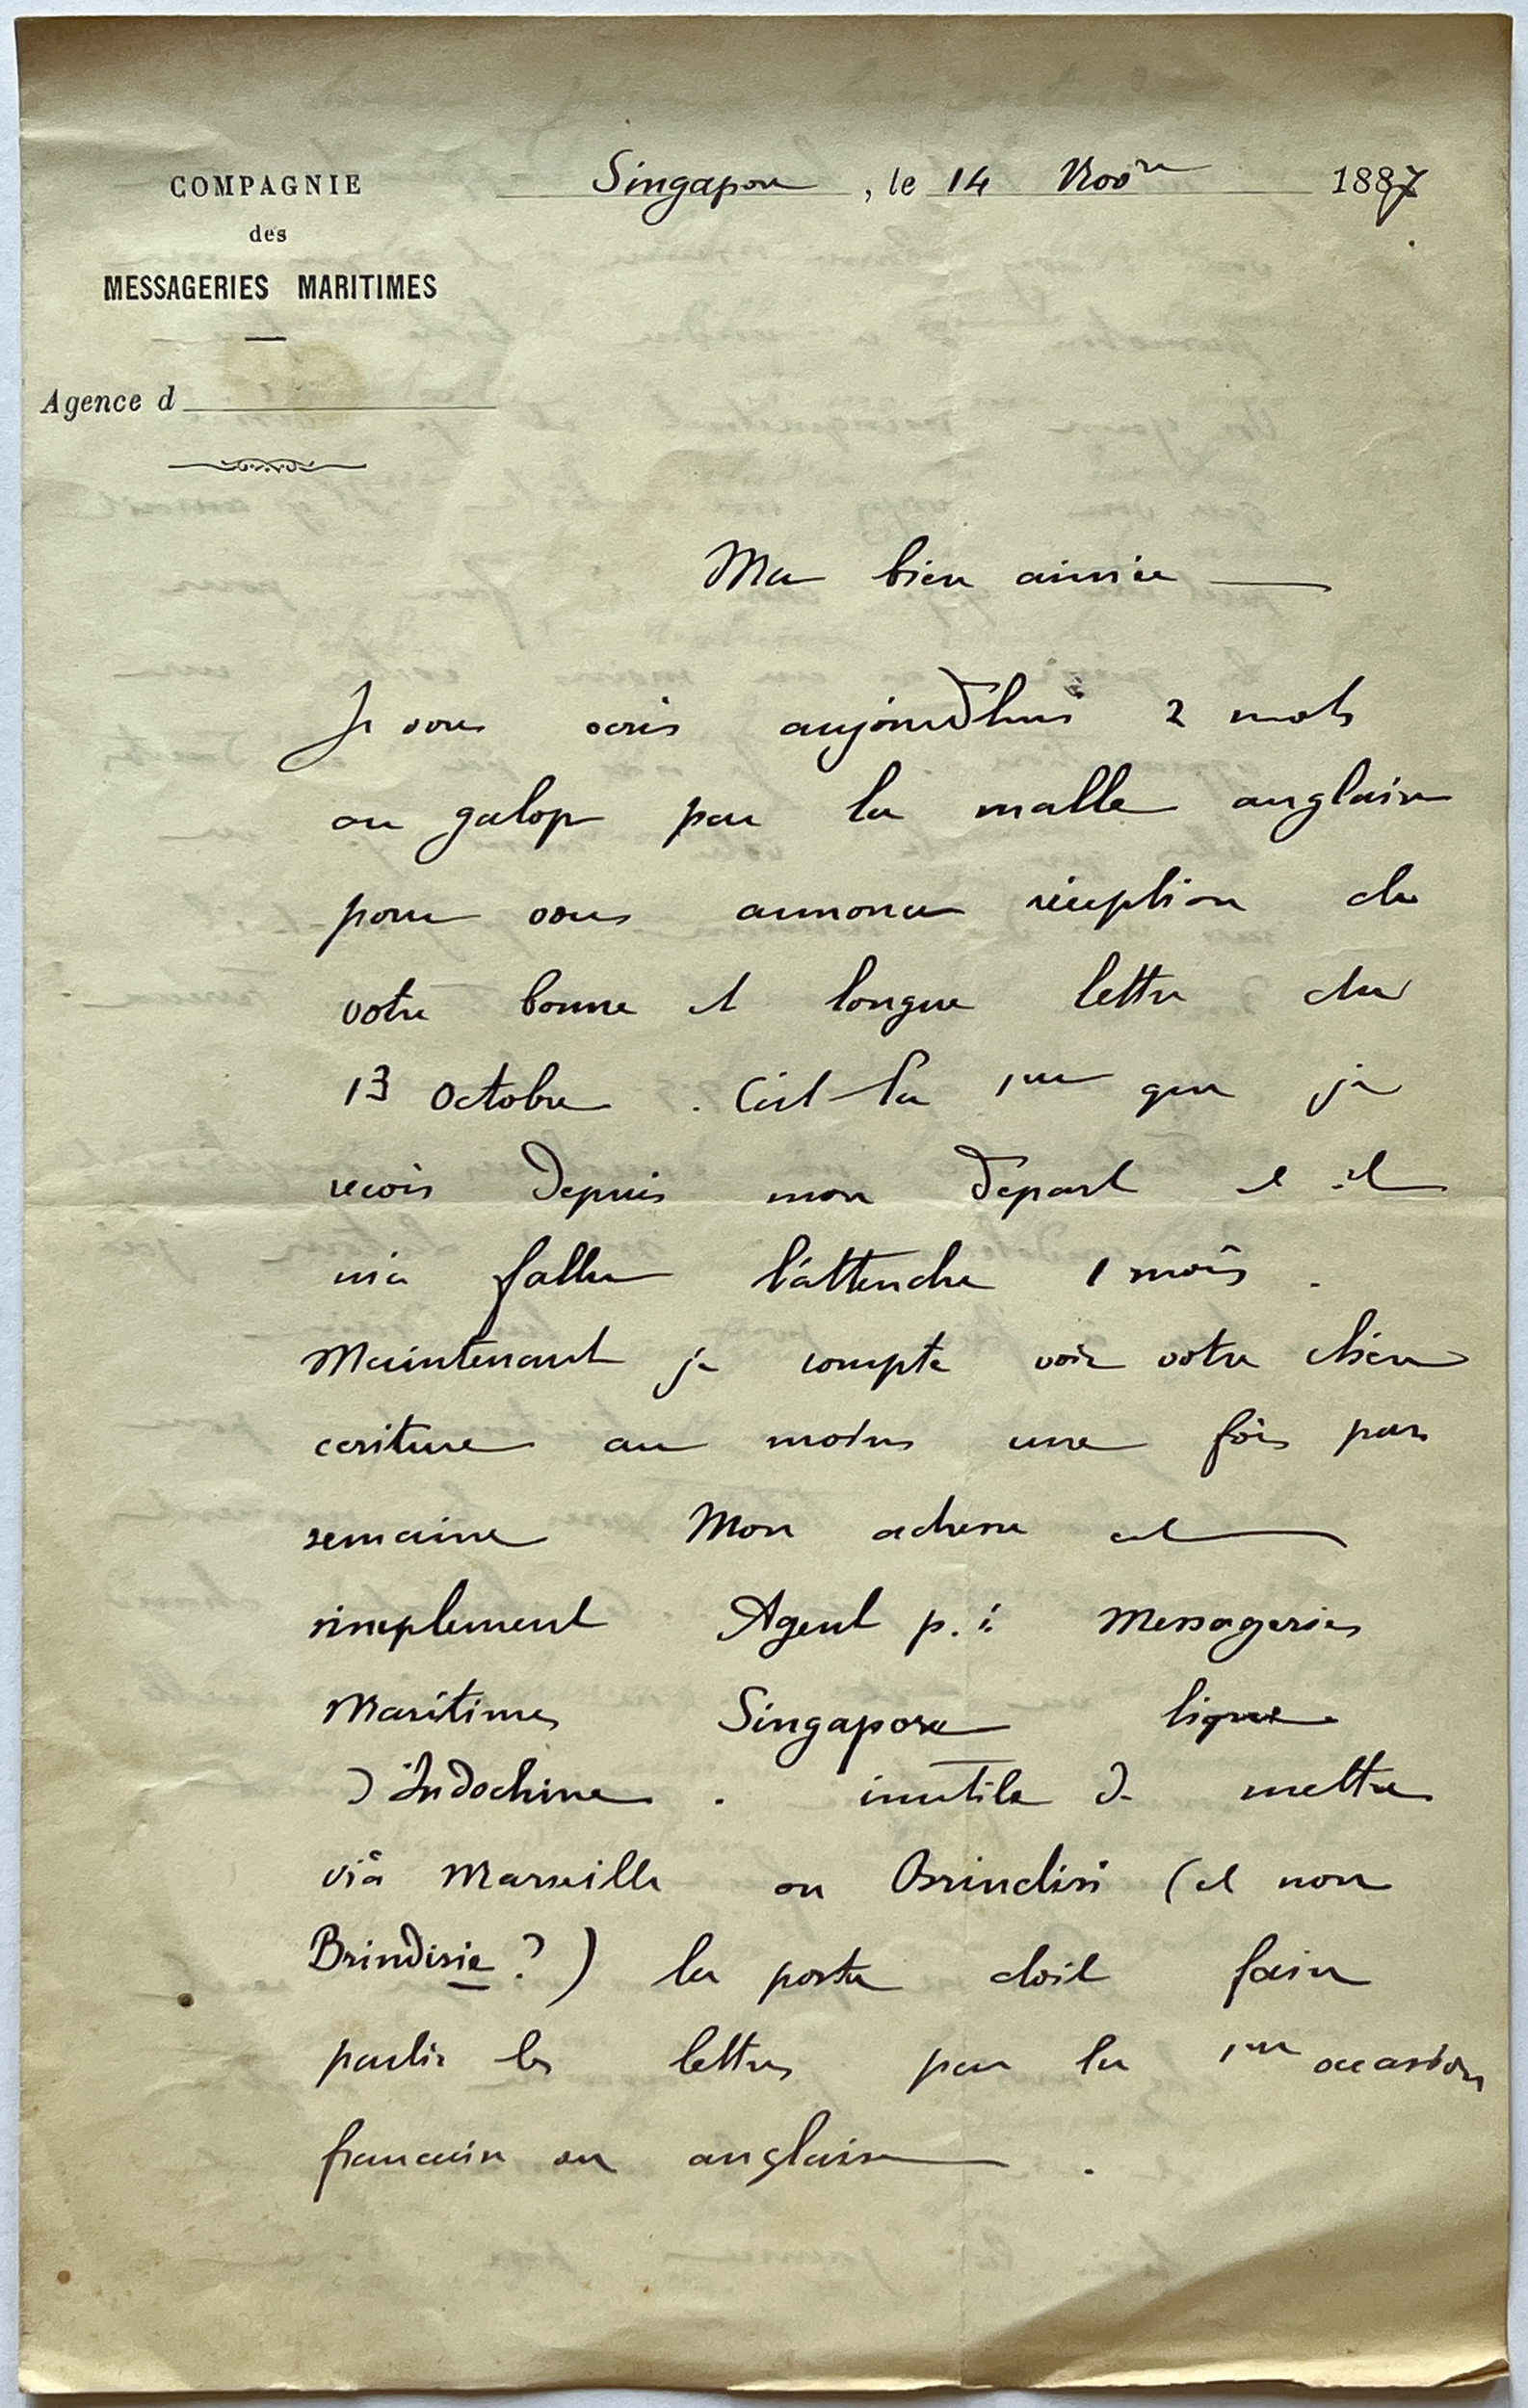 COMPAGNIE
des
MESSAGERIES MARITIMES
Agence d
Singapore, le 14 Nov^bre 1887
Ma bien aimée
Je vous écris aujourd'hui 2 mots
au galop par la malle anglaise
pour vous annoncer réception de
votre bonne et longue lettre du
13 Octobre. C'est la 1ere que je
recois depuis mon depart et il
m'a fallu l'attendre 1 mois.
Maintenant je compte voir votre chère
ecriture au moins une fois par
semaine Mon adresse est
simplement Agent p. i. Messageries
Maritimes Singapore ligne
d'Indochine. inutile de mettre
viâ Marseille ou Brindisi (et non
Brindisie ?) la poste doit faire
partir les lettres par la 1ere occasion
francaise ou anglaise.